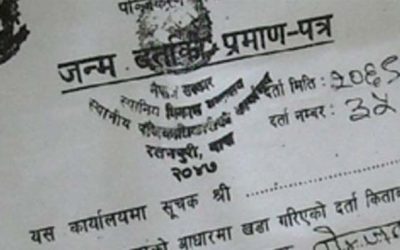 जन्म दर्ताको प्रमाण-पत्र
नेपाल सरकार
स्थानिय विकास मन्त्रालय
स्थानीय पञ्जिकाधिकारीको
रतनपुरी, बारा
२०४७
दर्ता मिति : २०६९
दर्ता नम्बर : ३५
यस कार्यालयमा सूचक श्री
आधारमा खडा गरिएको दर्ता किताब